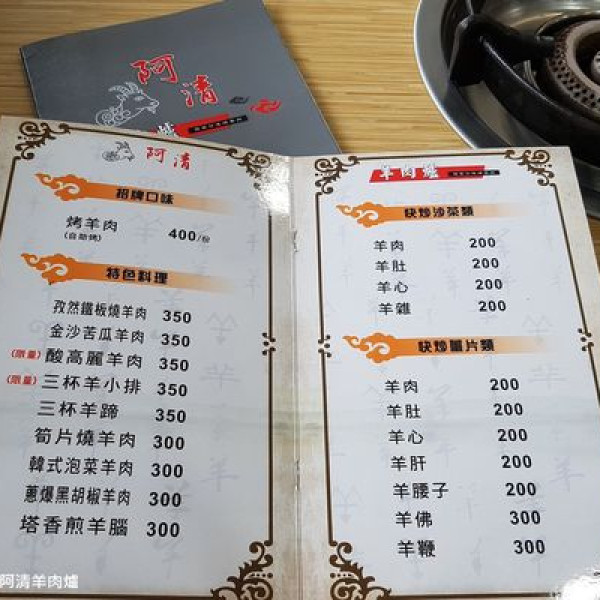 阿清
阿清
招牌口味
烤羊肉 400/份
(自助烤)
特色料理
孜然鐵板燒羊肉 350
金沙苦瓜羊肉 350
(限量)酸高麗羊肉 350
(限量)三杯羊小排 350
三杯羊蹄 350
筍片燒羊肉 300
韓式泡菜羊肉 300
蔥爆黑胡椒羊肉 300
塔香煎羊腦 300
羊肉爐
快炒沙茶類
羊肉 200
羊肚 200
羊心 200
羊雜 200
快炒薑片類
羊肉 200
羊肚 200
羊心 200
羊肝 200
羊腰子 200
羊佛 300
羊鞭 300
阿清羊肉爐